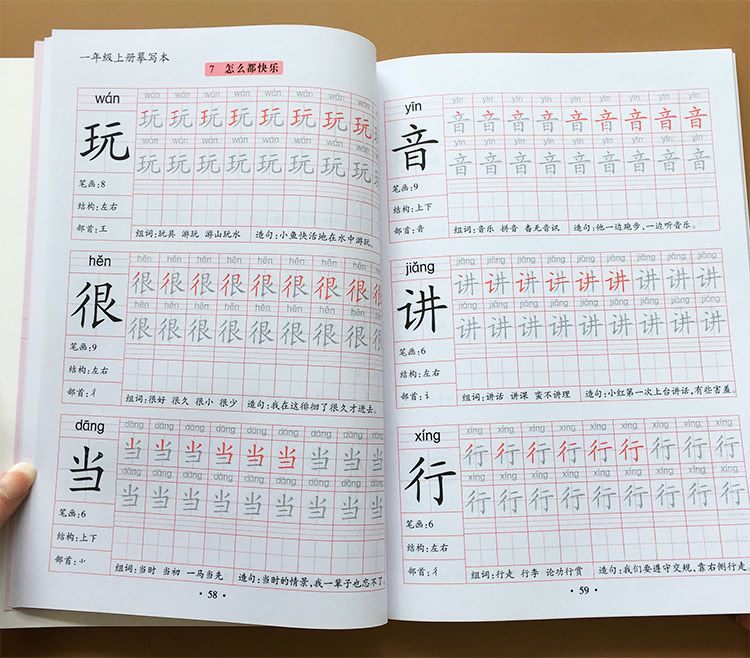 一年级上册摹写本
7 怎么都快乐
wán
wán wán wán wán wán wán wán wán
玩 玩 玩 玩 玩 玩 玩 玩 玩
wán wán wán wán wán wán wán wán
玩 玩 玩 玩 玩 玩 玩 玩
笔画:8
结构:左右
部首:王
组词:玩具 游玩 游山玩水 造句:小鱼快活地在水中游玩
hěn
hěn hěn hěn hěn hěn hěn hěn hěn hěn
很 很 很 很 很 很 很 很 很 很
hěn hěn hěn hěn hěn hěn hěn hěn hěn
很 很 很 很 很 很 很 很 很
笔画:9
结构:左右
部首:彳
组词:很好 很久 很小 很少 造句:我在这徘徊了很久才进去。
dāng
dāng dāng dāng dāng dāng dāng dāng dāng dāng
当 当 当 当 当 当 当 当 当 当
dāng dāng dāng dāng dāng dāng dāng dāng dāng
当 当 当 当 当 当 当 当 当
笔画:6
结构:上下
部首:⺌
组词:当时 当初 一马当先 造句:当时的情景,我一辈子也忘不了
· 58 ·
yīn
yīn yīn yīn yīn yīn yīn yīn yīn yīn
音 音 音 音 音 音 音 音 音 音
yīn yīn yīn yīn yīn yīn yīn yīn yīn
音 音 音 音 音 音 音 音 音
笔画:9
结构:上下
部首:音
组词:音乐 拼音 杳无音讯 造句:他一边跑步,一边听音乐。
jiǎng
jiǎng jiǎng jiǎng jiǎng jiǎng jiǎng jiǎng jiǎng jiǎng
讲 讲 讲 讲 讲 讲 讲 讲 讲 讲
jiǎng jiǎng jiǎng jiǎng jiǎng jiǎng jiǎng jiǎng jiǎng
讲 讲 讲 讲 讲 讲 讲 讲 讲
笔画:6
结构:左右
部首:讠
组词:讲话 讲课 蛮不讲理 造句:小红第一次上台讲话,有些害羞。
xíng
xíng xíng xíng xíng xíng xíng xíng xíng xíng
行 行 行 行 行 行 行 行 行 行
xíng xíng xíng xíng xíng xíng xíng xíng xíng
行 行 行 行 行 行 行 行 行
笔画:6
结构:左右
部首:彳
组词:行走 行李 论功行赏 造句:我们要遵守交规,靠右侧行走。
· 59 ·